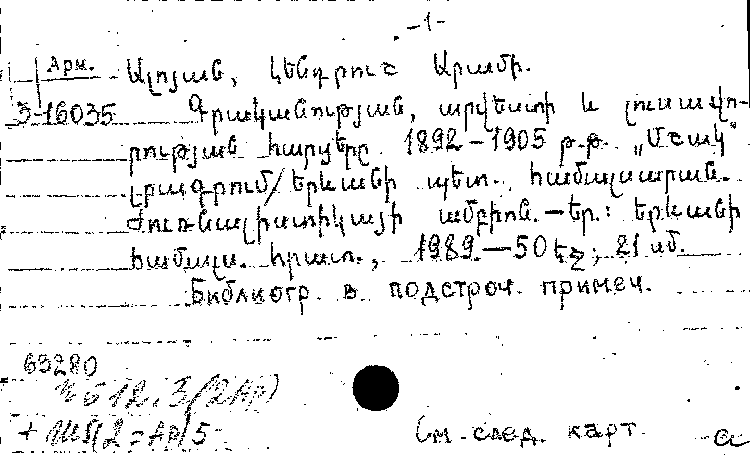 -1-
Арм. Ալոյան, Կենդրուշ Արամի.
Э-16035 Գրականության, արվեստի և լուսավո-
րության հարցերը 1892-1905 թ.թ. „Մշակ“
լրագրում/Երևանի պետ. համալսարան.
Ժուռնալիստիկայի ամբիոն.-Եր.: Երևանի
համալս. հրատ., 1989.-50 էջ; 21 սմ.
Библиогр. в подстроч. примеч.
63280
См. след. карт.